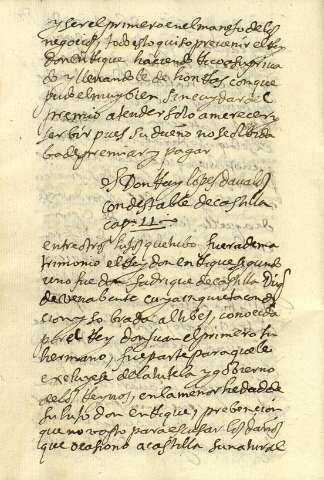 y ser el primero en el manejo de los
negocios, todo esto quiso prevenir el Rey
don enrrique haciendo rico a su priva
do y llenandole de honrras, con que
pudo el muy bien sin cuydar de el
premio atender solo a merecer y
serbir pues su dueño no se olbida
ba de premiar y pagar
Don Ruy lopes davalos
condestable de castilla
cap. 11.
entre otros hijos que hubo fuera de ma
trimonio el Rey don enrrique segundo
uno fue don fadrique de castilla Duq
de venabente cuya inquieta condi
sion y sobrada altibes, conocida
por el Rey don Juan el primero su
hermano, fue parte para que le
excluyese de la tutela y gobierno
de los Reynos, en la menor hedad de
su hijo don enrrique, prebencion
que no vasto para escusar los daños
que ocasiono a castilla su natural